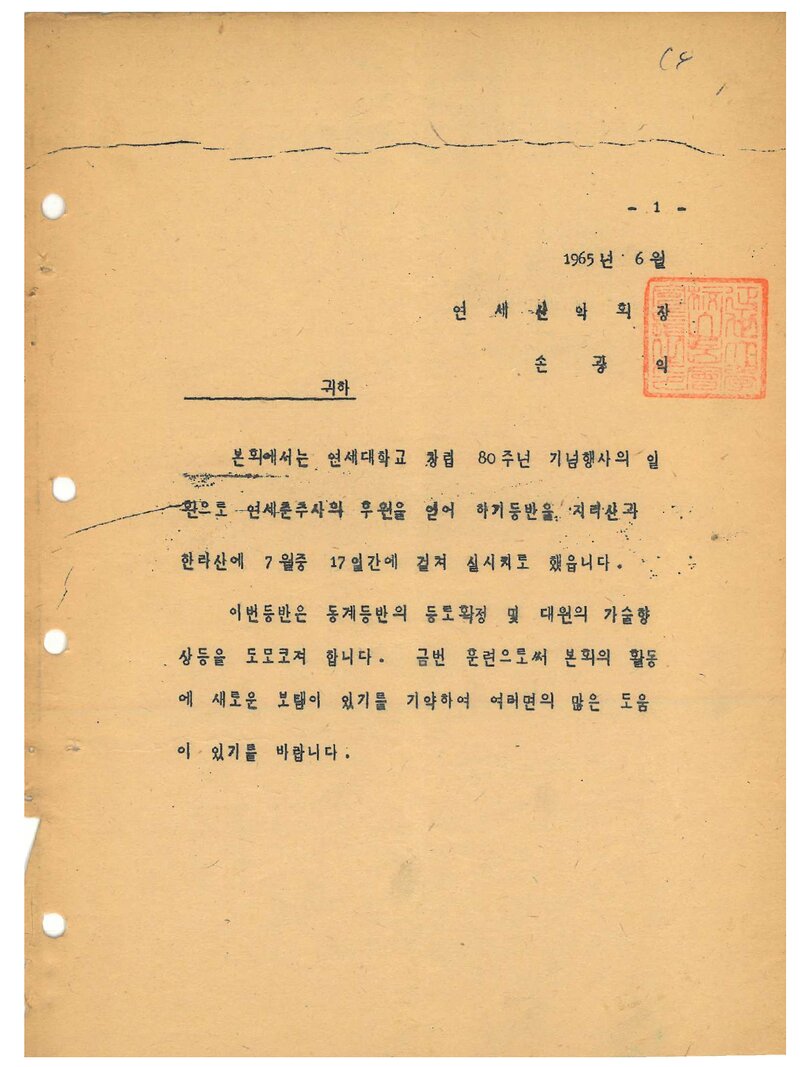 - 1 -
1965년 6월
연 세 산 악 회 장
손 광 익
귀하
본회에서는 연세대학교 창립 80주년 기념행사의 일
환으로 연세춘추사의 후원을 얻어 하기등반을 지리산과
한라산에 7월중 17일간에 걸쳐 실시키로 했읍니다.
이번등반은 동계등반의 등로확정 및 대원의 기술향
상등을 도모코져 합니다. 금번 훈련으로써 본회의 활동
에 새로운 보탬이 있기를 기약하여 여러면의 많은 도움
이 있기를 바랍니다.